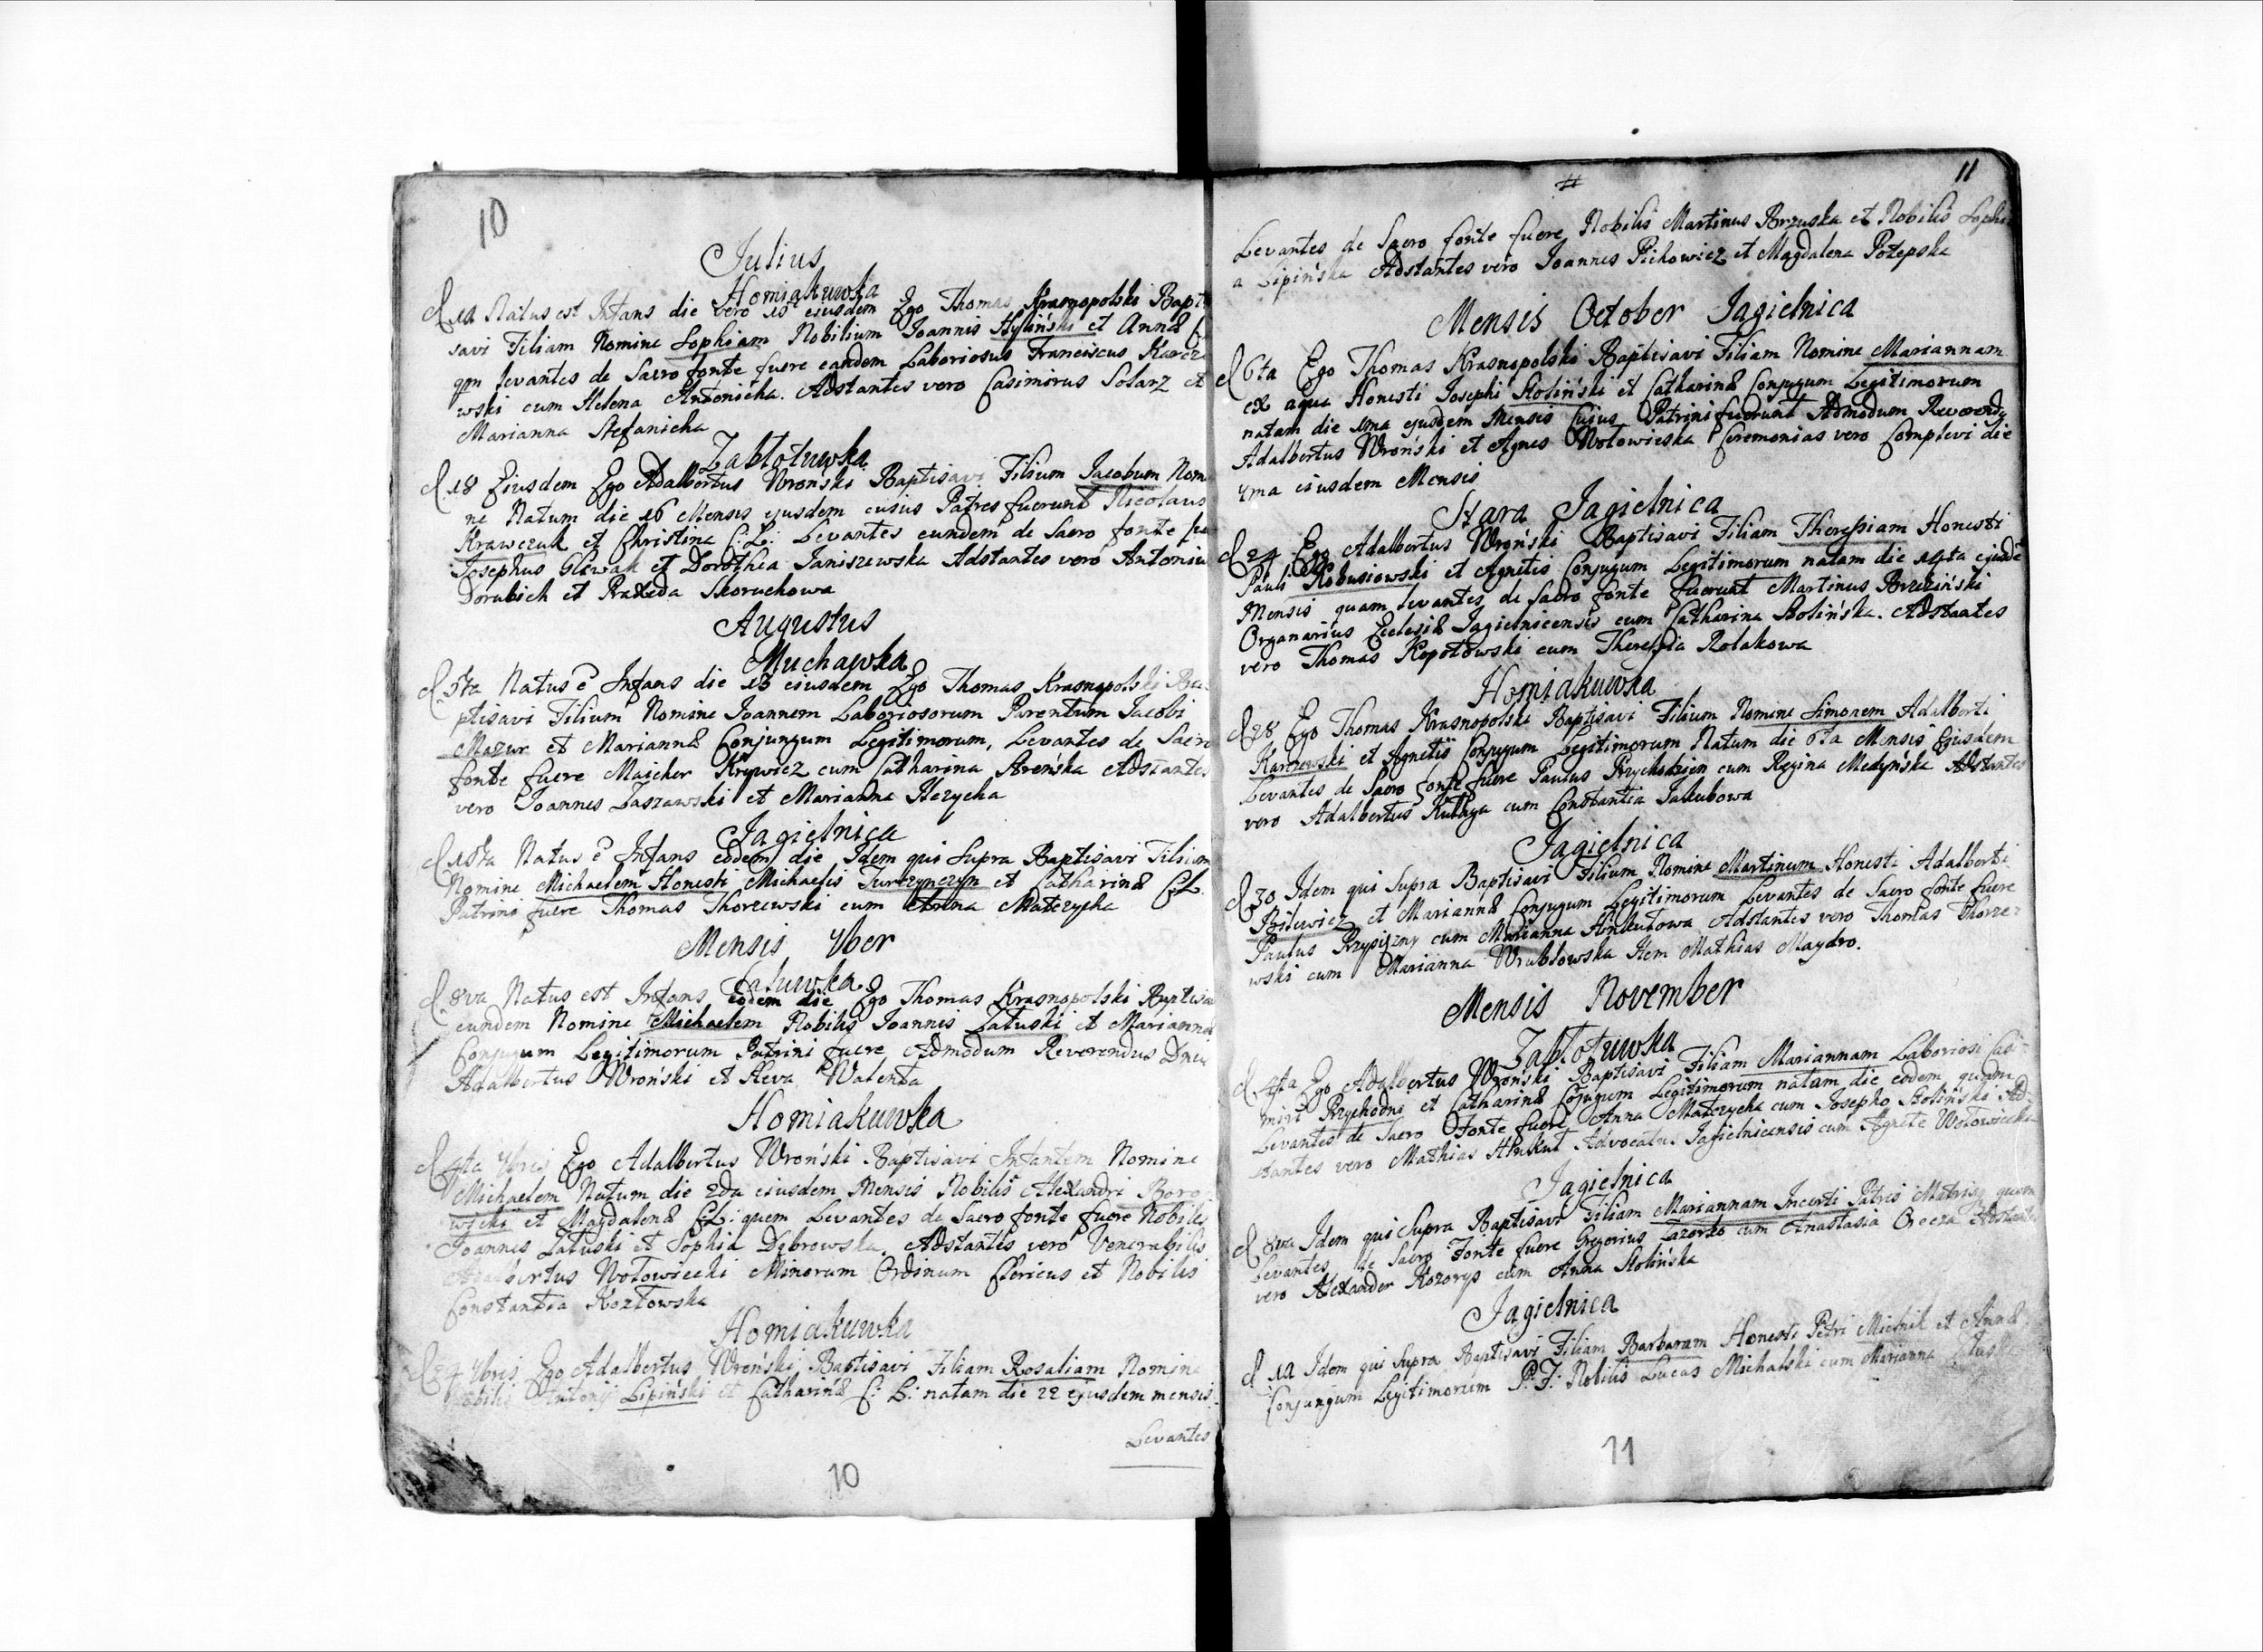 10
Julius
Homiakuwka
d 1a Natus est Infans die vero 15 eiusdem Ego Thomas Krasnopolski Bapti
savi Filiam Nomine Sophiam Nobilium Joannis Hyliński et Annæ
qm levantes de Sacro fonte fuere eandem Laboriosus Franciscus Karcze
wski cum Helena Antonicha. Adstantes vero Casimirus Solarz et
Marianna Stefanicha
Zabłotuwka
d 18 Eiusdem Ego Adalbertus Wroński Baptisavi Filium Jacobum Nomi
ne Natum die 16 Mensis ejusdem cuius Patres fuerunt Nicolaus
Krawczuk et Christina C: L: Levantes eundem de Sacro fonte fu
Josephus Slewak et Dorothea Janiszewska Adstantes vero Antoniu
Dorubich et Praxeda Skoruchowa
Augustus
Muchawka
d 5ta Natus e Infans die 13 eiusdem Ego Thomas Krasnopolski Ba
ptisavi Filium Nomine Joannem Laboriosorum Parentum Jacobi
Mazur et Mariannæ Conjungum Legitimorum, Levantes de Sacro
fonte fuere Maicher Krywicz cum Catharina Areńska Adstantes
vero Joannes Zaszawski et Marianna Herycha
Jagielnica
d 15ta Natus e Infans eodem die Idem qui Supra Baptisavi Filium
Nomine Michaelem Honesti Michaelis Turczynczyn et Catharinæ C: L.
Patrini fuere Thomas Thorzewski cum Anna Matczycha
Mensis 7ber
Saluwka
d 8va Natus est Infans eodem die Ego Thomas Krasnopolski Baptisa
eundem Nomine Michaelem Nobilis Joannis Załuski et Mariannæ
Conjugum Legitimorum Patrini fuere Admodum Reverendus Dnus
Adalbertus Wroński et Heva Walenta
Homiakuwka
d 4ta 7bris Ego Adalbertus Wroński Baptisavi Infantem Nomine
Michaelem Natum die 2da eiusdem Mensis Nobilis Alexandri Boro
wjcki et Magdalenæ C: L: quem Levantes de Sacro fonte fuere Nobiles
Joannes Załuski et Sophia Dębrowska. Adstantes vero Venerabilis
Adalbertus Wołowiecki Minorum Ordinum Clericus et Nobilis
Constantia Kozłowska
Homiakuwka
d 24 7bris Ego Adalbertus Wroński Baptisavi Filiam Rosaliam Nomine
Nobilis Antonij Lipiński et Catharinæ C: L: natam die 22 ejusdem mensis
Levantes
10
11
#
Levantes de Sacro fonte fuere Nobilis Martinus Brzuska et Nobilis Sophi
a Lipińska Adstantes vero Joannes Pichowicz et Magdalena Potępska
Mensis October Jagielnica
d 6ta Ego Thomas Krasnopolski Baptisavi Filiam Nomine Mariannam
ex aqua Honesti Josephi Stoliński et Catharinæ Conjugum Legitimorum
natam die 1ma ejusdem Mensis Cujus Patrini fuerunt Admodum Reverendus
Adalbertus Wroński et Agnes Wołowieska Ceremonias vero Complevi die
7ma eiusdem Mensis
Stara Jagielnica
d 24 Ego Adalbertus Wroński Baptisavi Filiam Theressiam Honesti
Pauli Robusiowski et Agnetis Conjugum Legitimorum natam die 14ta ejusde
Mensis quam levantes de Sacro fonte fuerunt Martinus Brzeziński
Organarius Ecclesiæ Jagielnicensis cum Catharina Stolińska. Adstantes
vero Thomas Kopotowski cum Theressia Rolakowa
Homiakuwka
d 28 Ego Thomas Krasnopolski Baptisavi Filium Nomine Simonem Adalberti
Karczewski et Agnetis Conjugum Legitimorum Natum die 6ta Mensis Ejusdem
Levantes de Sacro fonte fuere Paulus Przychodzjen cum Regina Medyńska Adstantes
vero Adalbertus Kutaga cum Constantia Jakubowa
Jagielnica
d 30 Idem qui Supra Baptisavi Filium Nomine Martinum Honesti Adalberti
Bilewicz et Mariannæ Conjugum Legitimorum Levantes de Sacro fonte fuere
Paulus Przypiczny cum Marianna Hinkutowa Adstantes vero Thomas Thorze-
wski cum Marianna Wrublowska Item Mathias Maydro.
Mensis November
Zabłotuwka
d 4ta Ego Adalbertus Wroński Baptisavi Filiam Mariannam Laboriosi Casi-
miri Przychodni et Catharinæ Conjugum Legitimorum natam die eodem quam
Levantes de Sacro Fonte fuere Anna Matczycha cum Josepho Stoliński Ad-
stantes vero Mathias Hinkut Advocatus Jagielnicensis cum Agnete Wołowiecka
Jagielnica
d 8va Idem qui Supra Baptisavi Filiam Mariannam Incerti Patris Matrisq quam
Levantes de Sacro Fonte fuere Gregorius Lazorko cum Anastasia Adstantes
vero Alexander Kozorys cum Anna Stolińska
Jagielnica
d 1a Idem qui Supra Baptisavi Filiam Barbaram Honesti Petri Mielnik et Annæ
Conjungum Legitimorum P: F: Nobilis Lucas Michalski cum Marianna
11